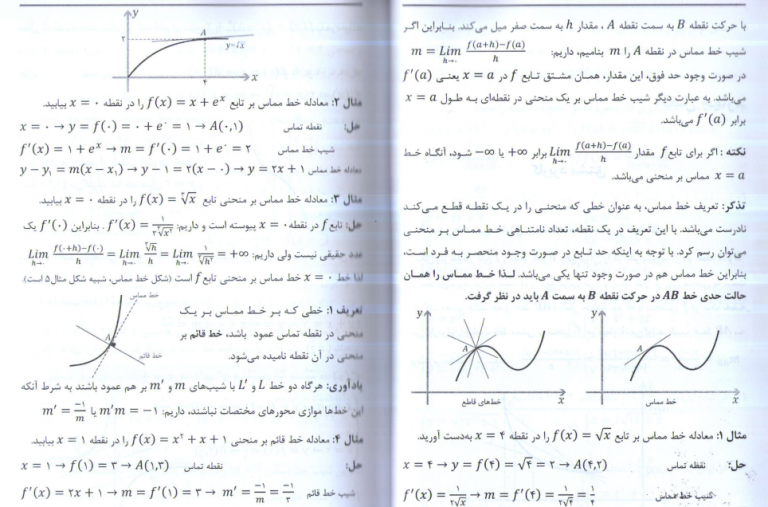 با حرکت نقطه B به سمت نقطه A ، مقدار h به سمت صفر میل می‌کند. بنابراین اگر
شیب خط مماس در نقطه A را m بنامیم، داریم: m = Lim h→۰ f(a+h)−f(a)/h
در صورت وجود حد فوق، این مقدار، همان مشتق تابع f در x = a یعنی f′(a)
می‌باشد. به عبارت دیگر شیب خط مماس بر یک منحنی در نقطه‌ای به طول x = a
برابر f′(a) می‌باشد.
نکته: اگر برای تابع f مقدار Lim h→۰ f(a+h)−f(a)/h برابر +∞ یا −∞ شود، آنگاه خط
x = a مماس بر منحنی می‌باشد.
تذکر: تعریف خط مماس، به عنوان خطی که منحنی را در یک نقطه قطع می‌کند
نادرست می‌باشد. با این تعریف در یک نقطه، تعداد نامتناهی خط مماس بر منحنی
می‌توان رسم کرد. با توجه به اینکه حد تابع در صورت وجود منحصر به فرد است،
بنابراین خط مماس هم در صورت وجود تنها یکی می‌باشد. لذا خط مماس را همان
حالت حدی خط AB در حرکت نقطه B به سمت A باید در نظر گرفت.
y
A
x
خط مماس
y
A
x
خط‌های قاطع
مثال ۱: معادله خط مماس بر تابع f(x) = √x را در نقطه x = ۴ به‌دست آورید.
حل:
x = ۴ → y = f(۴) = √۴ = ۲ → A(۴,۲) نقطه تماس
f′(x) = ۱/۲√x → m = f′(۴) = ۱/۲√۴ = ۱/۴ شیب خط مماس
y
۲
A
y=√x
۴
x
مثال ۲: معادله خط مماس بر تابع f(x) = x + eˣ را در نقطه x = ۰ بیابید.
حل: نقطه تماس x = ۰ → y = f(۰) = ۰ + e⁰ = ۱ → A(۰,۱)
شیب خط مماس f′(x) = ۱ + eˣ → m = f′(۰) = ۱ + e⁰ = ۲
معادله خط مماس y − y₁ = m(x − x₁) → y − ۱ = ۲(x − ۰) → y = ۲x + ۱
مثال ۳: معادله خط مماس بر منحنی تابع f(x) = ∛x را در نقطه x = ۰ بیابید.
حل: تابع f در نقطه x = ۰ پیوسته است و داریم: f′(x) = ۱/۳∛x² . بنابراین f′(۰) یک
عدد حقیقی نیست ولی داریم: Lim h→۰ f(۰+h)−f(۰)/h = Lim h→۰ ∛h/h = Lim h→۰ ۱/∛h² = +∞
لذا خط x = ۰ خط مماس بر منحنی تابع f است (شکل خط مماس، شبیه شکل مثال۵ است).
تعریف ۱: خطی که بر خط مماس بر یک
منحنی در نقطه تماس عمود باشد، خط قائم بر
منحنی در آن نقطه نامیده می‌شود.
خط مماس
A
خط قائم
یادآوری: هرگاه دو خط L و L′ با شیب‌های m و m′ بر هم عمود باشند به شرط آنکه
این خط‌ها موازی محورهای مختصات نباشند، داریم: m′m = −۱ یا m′ = −۱/m
مثال ۴: معادله خط قائم بر منحنی f(x) = x² + x + ۱ را در نقطه x = ۱ بیابید.
حل: نقطه تماس x = ۱ → f(۱) = ۳ → A(۱,۳)
شیب خط قائم f′(x) = ۲x + ۱ → m = f′(۱) = ۳ → m′ = −۱/m = −۱/۳